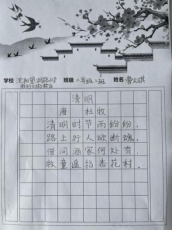 学校 班级 一年级 班 姓名
清明
唐 杜牧
清明时节雨纷纷，
路上行人欲断魂。
借问酒家何处有，
牧童遥指杏花村。